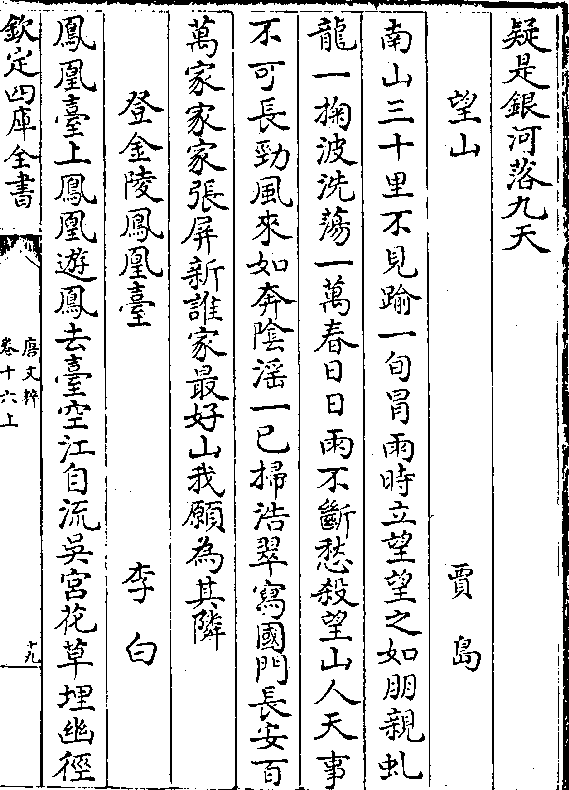 疑是銀河落九天
望山 賈島
南山三十里不見踰一旬冒雨時立望望之如朋親虬
龍一掬波洗蕩一萬春日日雨不斷愁殺望山人天事
不可長勁風來如奔陰淫一已掃浩翠寫國門長安百
萬家家家張屏新誰家最好山我願為其隣
登金陵鳳凰臺 李白
鳳凰臺上鳳凰遊鳳去臺空江自流吳宮花草埋幽徑
欽定四庫全書
唐文粹
卷十六上
十九